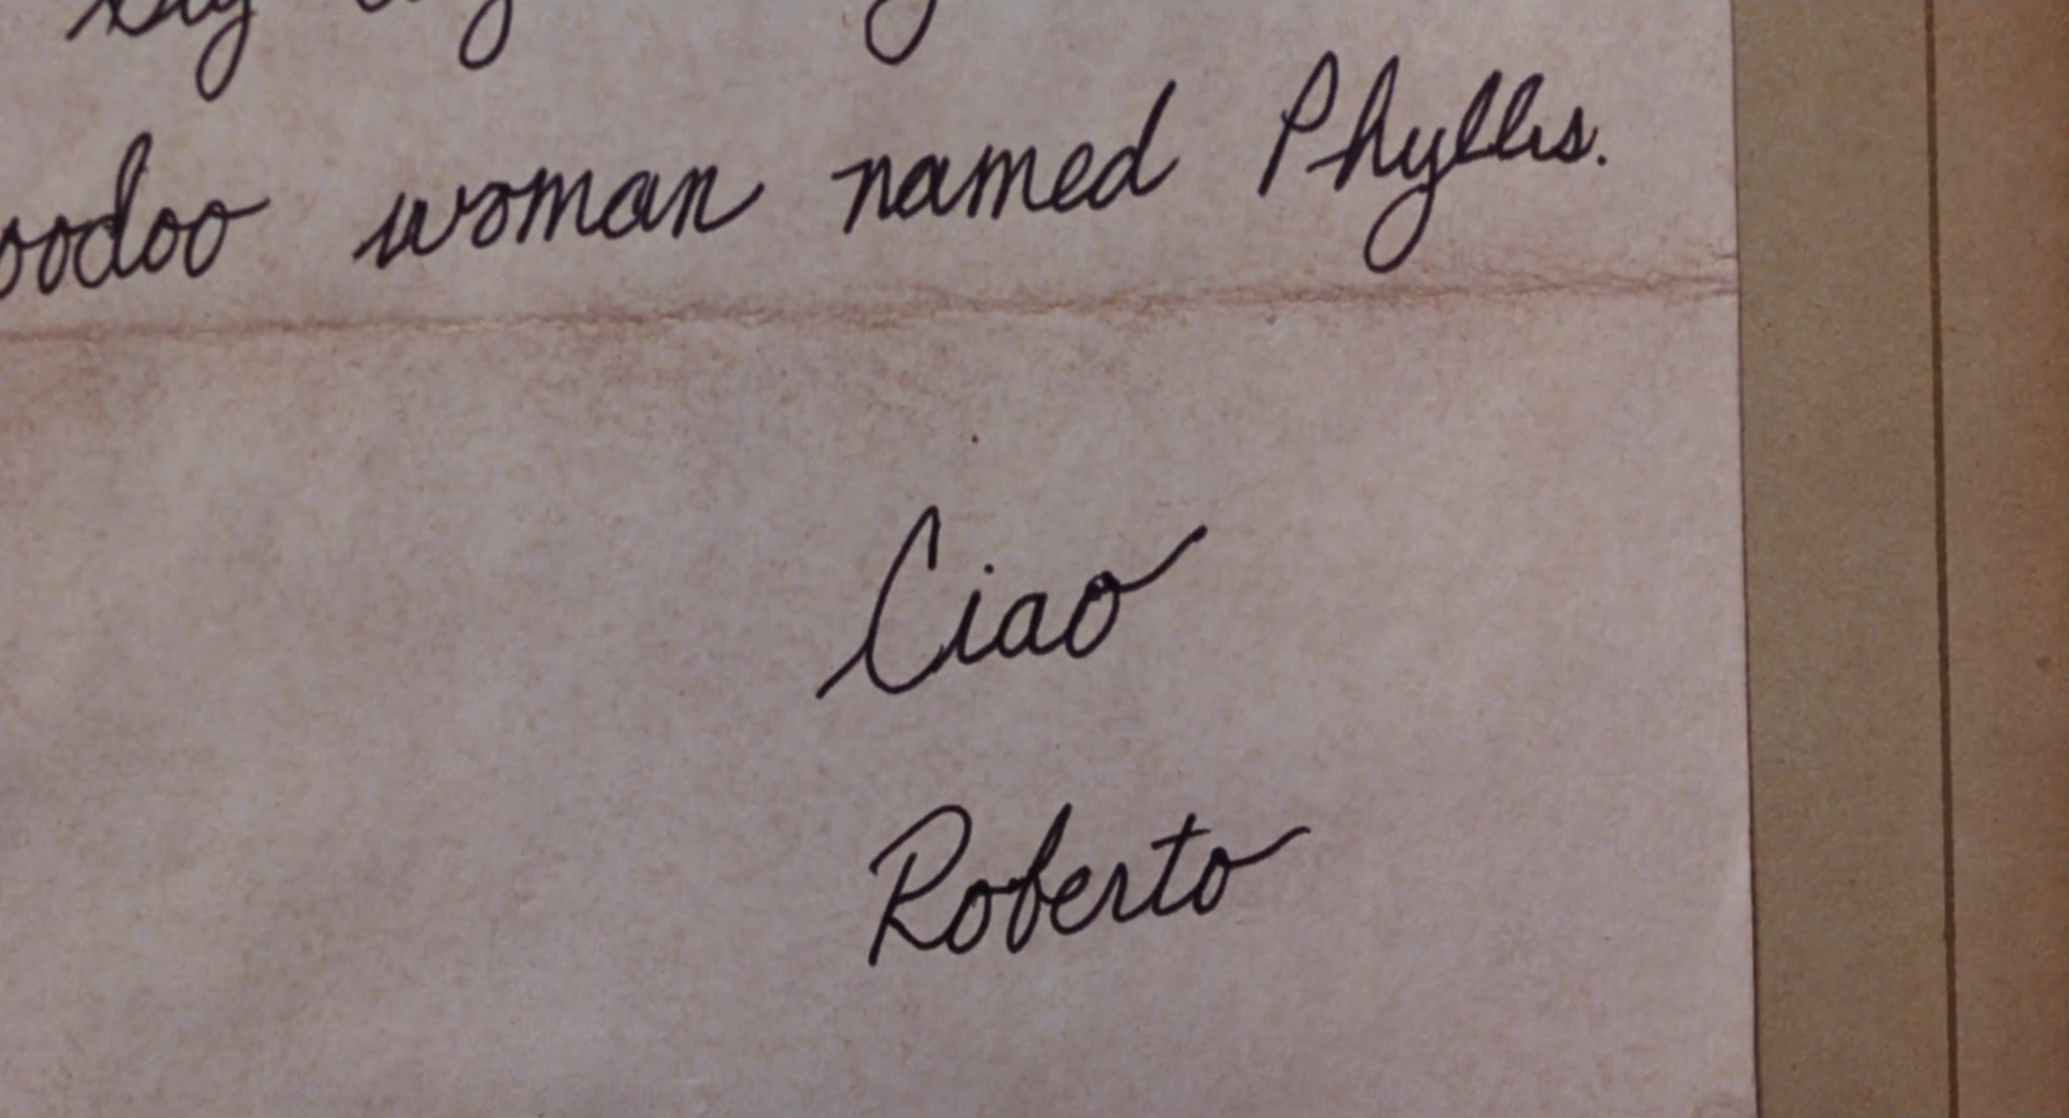 woman named Phyllis.
Ciao
Roberto